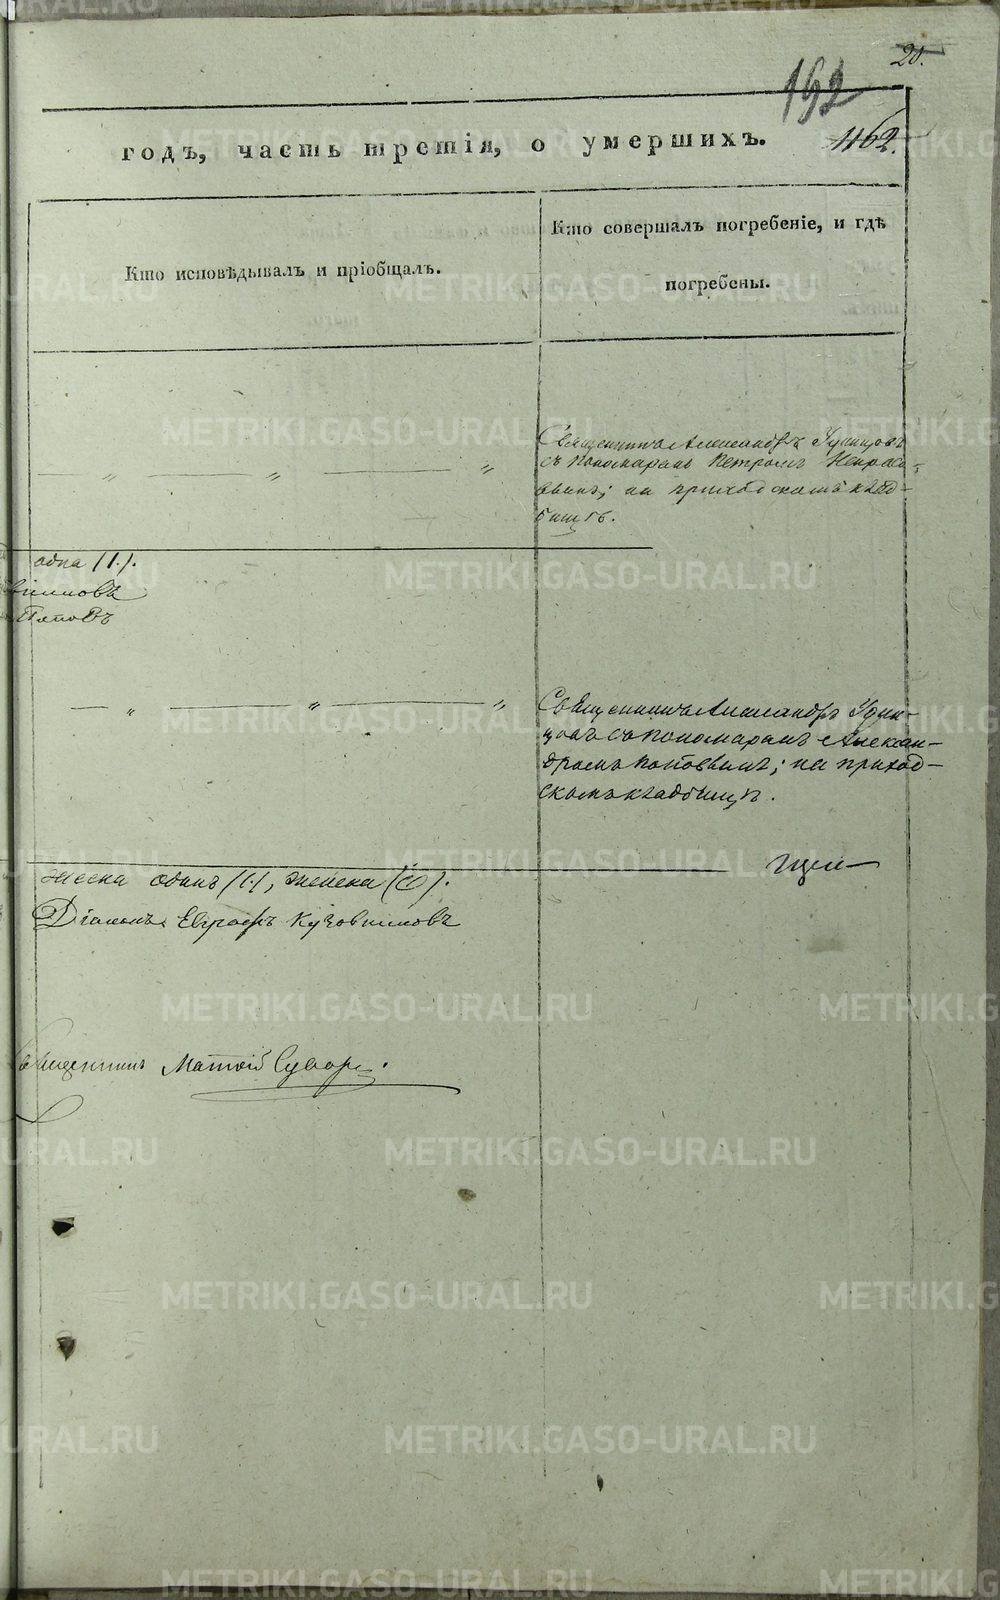 20.
192
1162.
годъ, часть третія, о умершихъ.
Кто исповѣдывалъ и пріобщалъ.
Кто совершалъ погребеніе, и гдѣ
погребены.
Священникъ Александръ Удинцовъ
съ пономаремъ Петромъ Некрасо-
вымъ; на приходскомъ клад-
бищѣ.
одна (1.).
Поповъ
Священникъ Александръ Удин-
цовъ съ пономаремъ Алексан-
дромъ Поповымъ; на приход-
скомъ кладбищѣ.
одинъ (1.), женска
Діаконъ Евграфъ Кузовниковъ
Священникъ Матѳій
METRIKI.GASO-URAL.RU